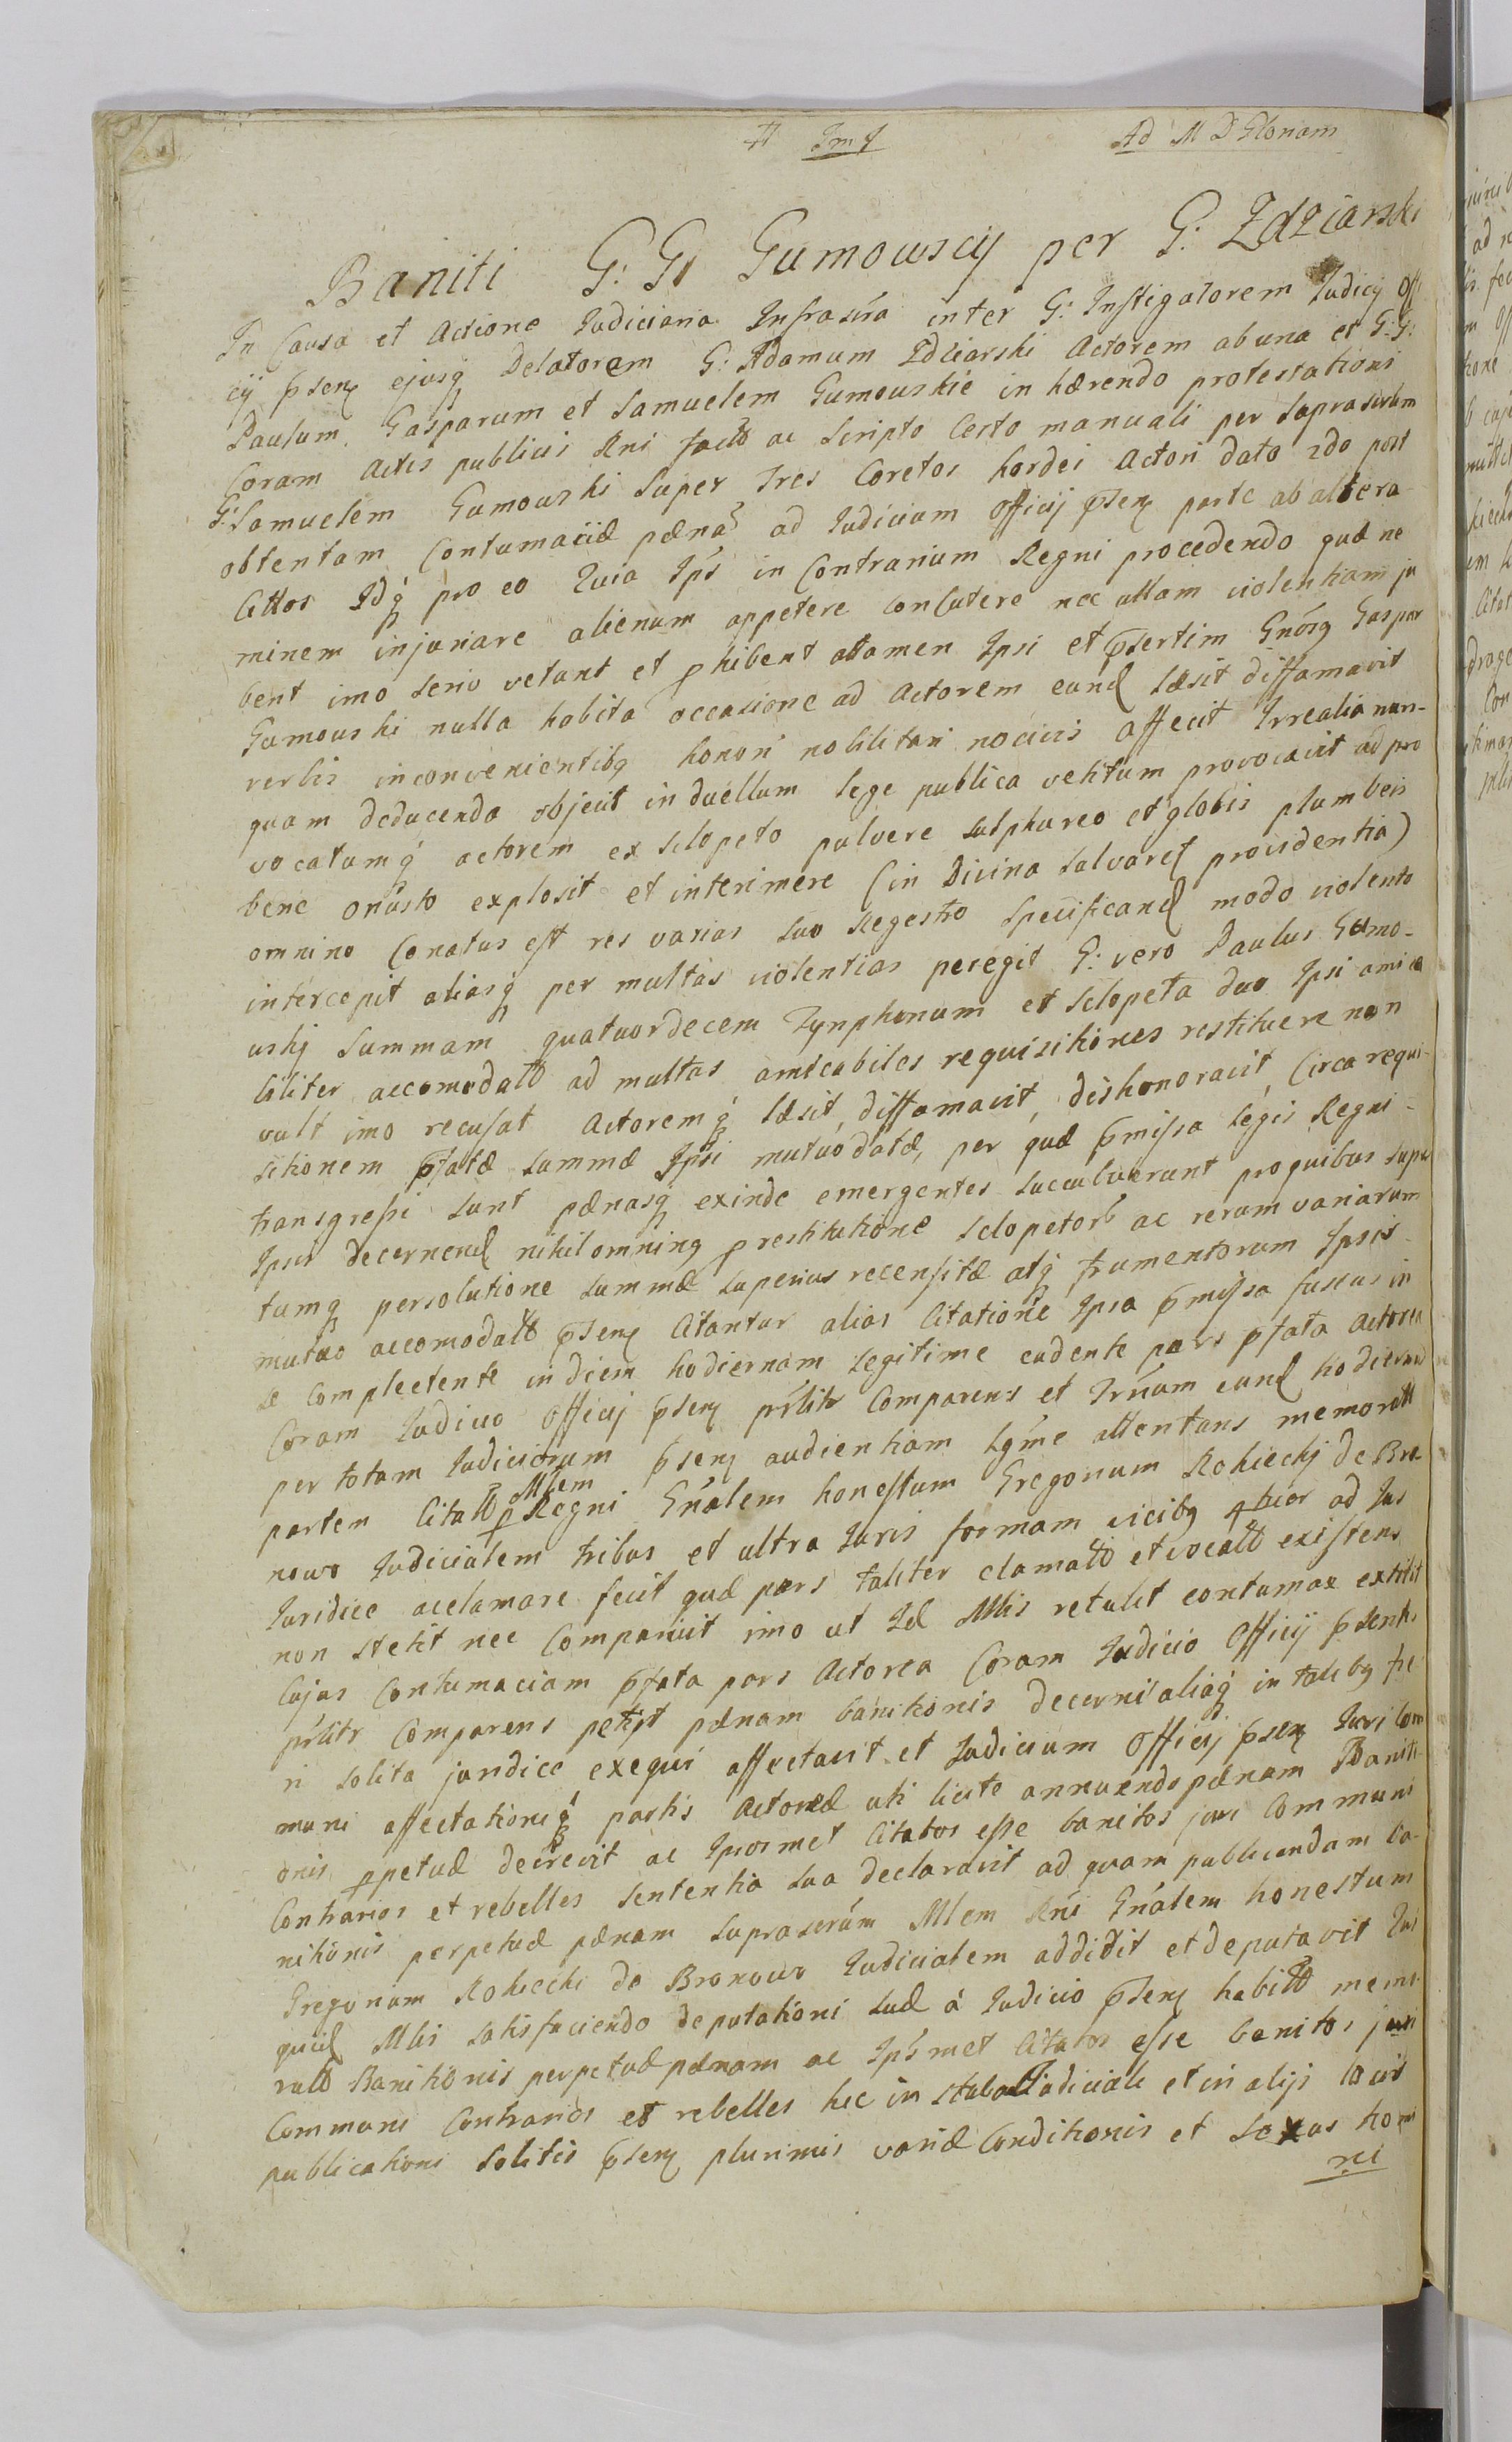 Ad M D Gloriam
Baniti G: G: Gumowscij per G: Zdziarski
In Causa et Actione Iudiciaria Infrascrã inter G: Instigatorem Iudicij Offi
cij pñsenꝫ ejusqꝫ Delatorem G: Adamum Zdziarski Actorem ab una et G: G:
Paulum, Gasparum et Samuelem Gumowskie in hærendo protestationi
Coram Actis publicis Rni factæ ac Scripto Certo manuali per Suprascriptum
G: Samuelem Gumowski Super Tres Coretos hordei Actori dato 2do post
obtentam Contumaciæ pœnã ad Iudicium Officij pñsenꝫ parte ab altera
Cittos Idqꝫ pro eo Quia Ips in Contrarium Regni procedendo quæ ne
minem injuriare alienum appetere concutere nec ullam violentiam ju
bent imo serio vetant et phibent attamen Ipsi et psertim Gnõsqꝫ Gaspar
Gumowski nulla habita occasione ad Actorem eund læsit diffamavit
verbis inconvenientibqꝫ honori nobilitari nocivis affecit Irrealia nun-
quam deducenda objecit in duellum lege publica vetitum provocavit ad pro
vocatumqꝫ actorem ex sclopeto pulvere sulphureo et globis plumbeis
bene onusto explosit et interimere (in Divina salvaret providentia)
omnino Conatus est res varias suo Regestro Specificand modo violento
intercepit aliasqꝫ per multas violentias peregit G: vero Paulus Gumo-
wskij Summam quatuordecem Tynphonum et Sclopeta duo Ipsi amica
biliter accomodatt ad multas amicabiles requisitiones restituere non
vult imo recusat Actoremqꝫ læsit, diffamavit, dishonoravit, Circa requi-
sitionem pfatæ summæ Ipsi mutuo datæ, per quæ pmissa legis Regni
transgressi sunt pœnasqꝫ exinde emergentes succubuerunt pro quibus supe
Ipsis decernend nihilominqꝫ p restitutione sclopetorũ ac rerum variarum
tumqꝫ persolutione summæ superius recensitæ atqꝫ frumentorum Ipsis
mutuo accomodatt pñsenꝫ Citantur alias Citatione Ipsa pmissa fusius in
se complectente in diem hodiernam Legitime cadente pars pfata actorea
Coram Iudicio Officij pñsenꝫ prsliter Comparens et Trñum eund hodiernũ
per totam Iudiciorum pñsenꝫ audientiam Lgme attentans memoratt
partem Citatt p Mlem Regni Gnãlem honestum Gregorium Rokiecki de Bro
nowo Iudicialem tribus et ultra Iuris formam vicibqꝫ qtuor ad Ius
Iuridice acclamare fecit quæ pars taliter clamatt et vocatt existens
non stetit nec Comparuit imo ut Id Mlis retulit contumax extitit
Cujus Contumaciam pfata pars Actorea Coram Iudicio Officij pñsenti
prsliter Comparens petijt pœnam banitionis decerni aliaqꝫ in talibqꝫ fie
ri solita juridice exequi affectavit et Iudicium Officij pñsenꝫ Iuri Com
muni affectationiqꝫ partis Actoreæ uti licite annuendo pœnam Baniti-
onis ppetuæ decrevit ac Ipsosmet Citatos esse banitos juri Communi
Contrarios et rebelles sententia sua declaravit ad quam publicandam ba-
nitionis perpetuæ pœnam suprascrãm Mlem Rni Gnãlem honestum
Gregorium Rokiecki de Bronowo Iudicialem addidit et deputavit Qui
quid Mlis satisfaciendo deputationi suæ à Iudicio pñsenꝫ habitt memo
ratt Banitionis perpetuæ pœnam ac Ipsmet Citatos esse banitos juri
Communi Contrarios et rebelles hic in stuba Iudiciali et in alijs locis
publicationi solitis pñsenꝫ plurimis variæ Conditionis et sexus homi
ni